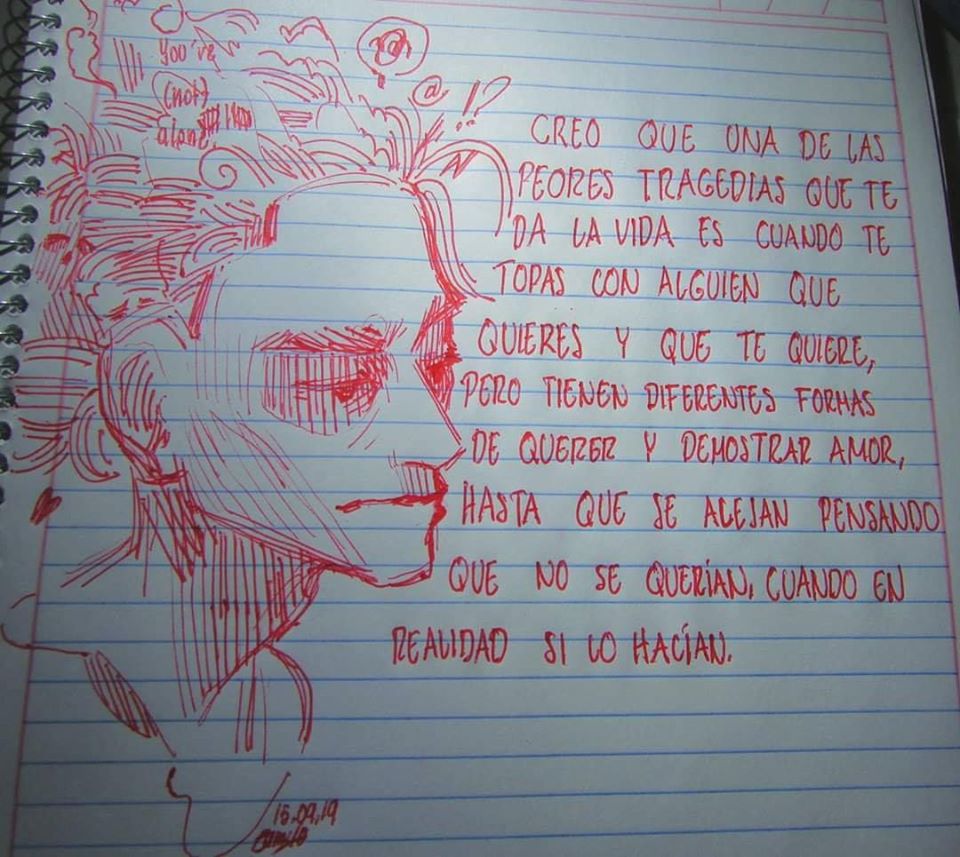 You're
(not)
alone.
@
!?
CREO QUE UNA DE LAS
PEORES TRAGEDIAS QUE TE
DA LA VIDA ES CUANDO TE
TOPAS CON ALGUIEN QUE
QUIERES Y QUE TE QUIERE,
PERO TIENEN DIFERENTES FORMAS
DE QUERER Y DEMOSTRAR AMOR,
HASTA QUE SE ALEJAN PENSANDO
QUE NO SE QUERÍAN, CUANDO EN
REALIDAD SI LO HACÍAN.
15.09.19